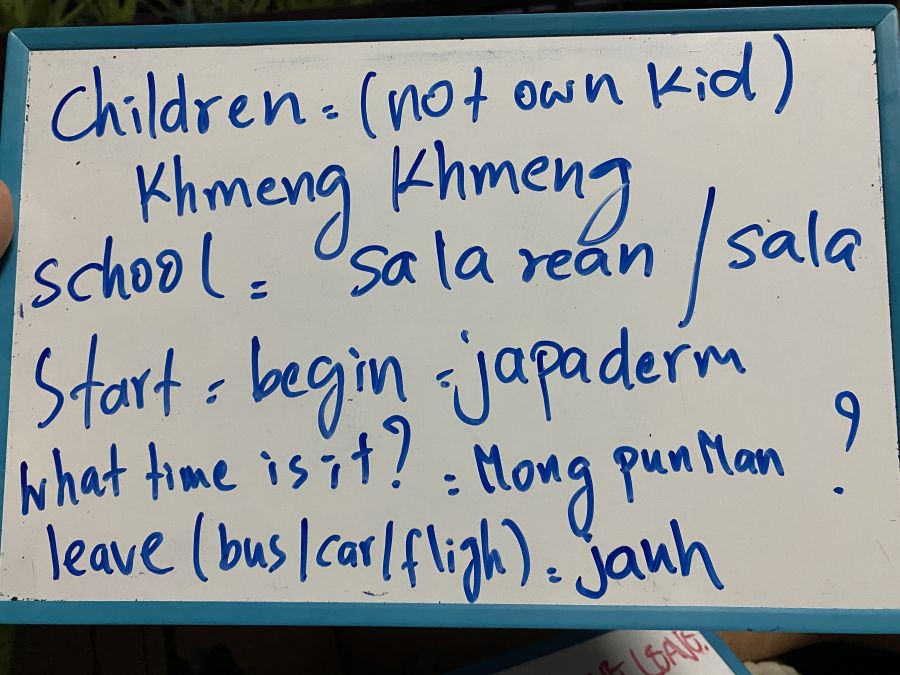 Children = (not own kid)
Khmeng Khmeng
school = sala rean / sala
Start = begin = japaderm
What time is it? = Mong punMan ?
leave (bus/car/fligh) = janh
LEAVE.